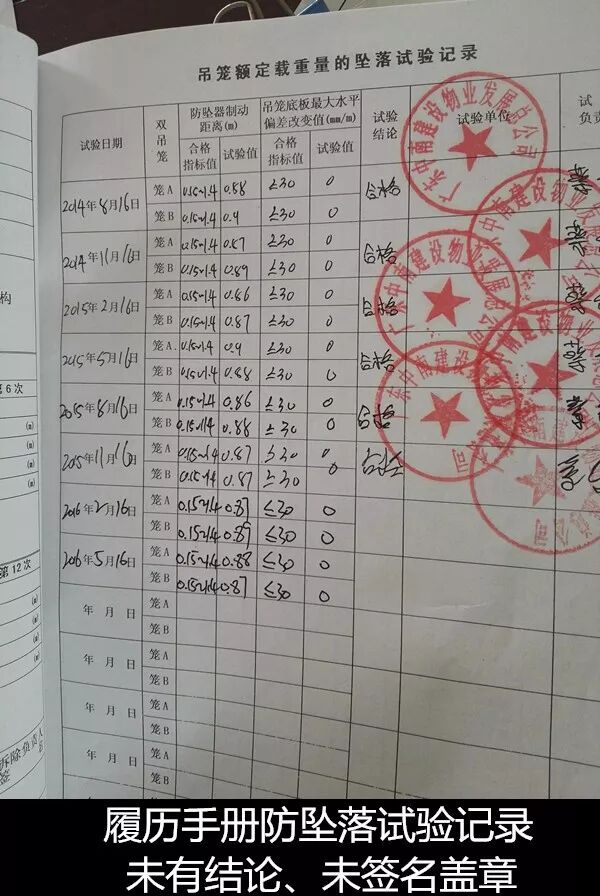 吊笼额定载重量的坠落试验记录
试验日期 双吊笼 防坠器制动距离(m) 吊笼底板最大水平偏差改变值(mm/m) 试验结论 试验单位 试
负责
合格指标值 试验值 合格指标值 试验值
2014年8月16日 笼A 0.15~1.4 0.88 ≤30 0 合格
笼B 0.15~1.4 0.9 ≤30 0
2014年11月16日 笼A 0.15~1.4 0.87 ≤30 0 合格
笼B 0.15~1.4 0.89 ≤30 0
2015年2月16日 笼A 0.15~1.4 0.86 ≤30 0 合格
笼B 0.15~1.4 0.87 ≤30 0
2015年5月16日 笼A 0.15~1.4 0.9 ≤30 0 合格
笼B 0.15~1.4 0.88 ≤30 0
2015年8月16日 笼A 0.15~1.4 0.86 ≤30 0 合格
笼B 0.15~1.4 0.88 ≤30 0
2015年11月16日 笼A 0.15~1.4 0.87 ≤30 0 合格
笼B 0.15~1.4 0.87 ≤30 0
2016年2月16日 笼A 0.15~1.4 0.87 ≤30 0
笼B 0.15~1.4 0.89 ≤30 0
2016年5月16日 笼A 0.15~1.4 0.88 ≤30 0
笼B 0.15~1.4 0.87 ≤30 0
年 月 日 笼A
笼B
年 月 日 笼A
笼B
年 月 日 笼A
笼B
年 月 日 笼A
笼B
广东中南建设物业发展总公司
构
第6次
(m)
(m)
(m)
第12次
(m)
(m)
(m)
拆除负责人
签
履历手册防坠落试验记录
未有结论、未签名盖章